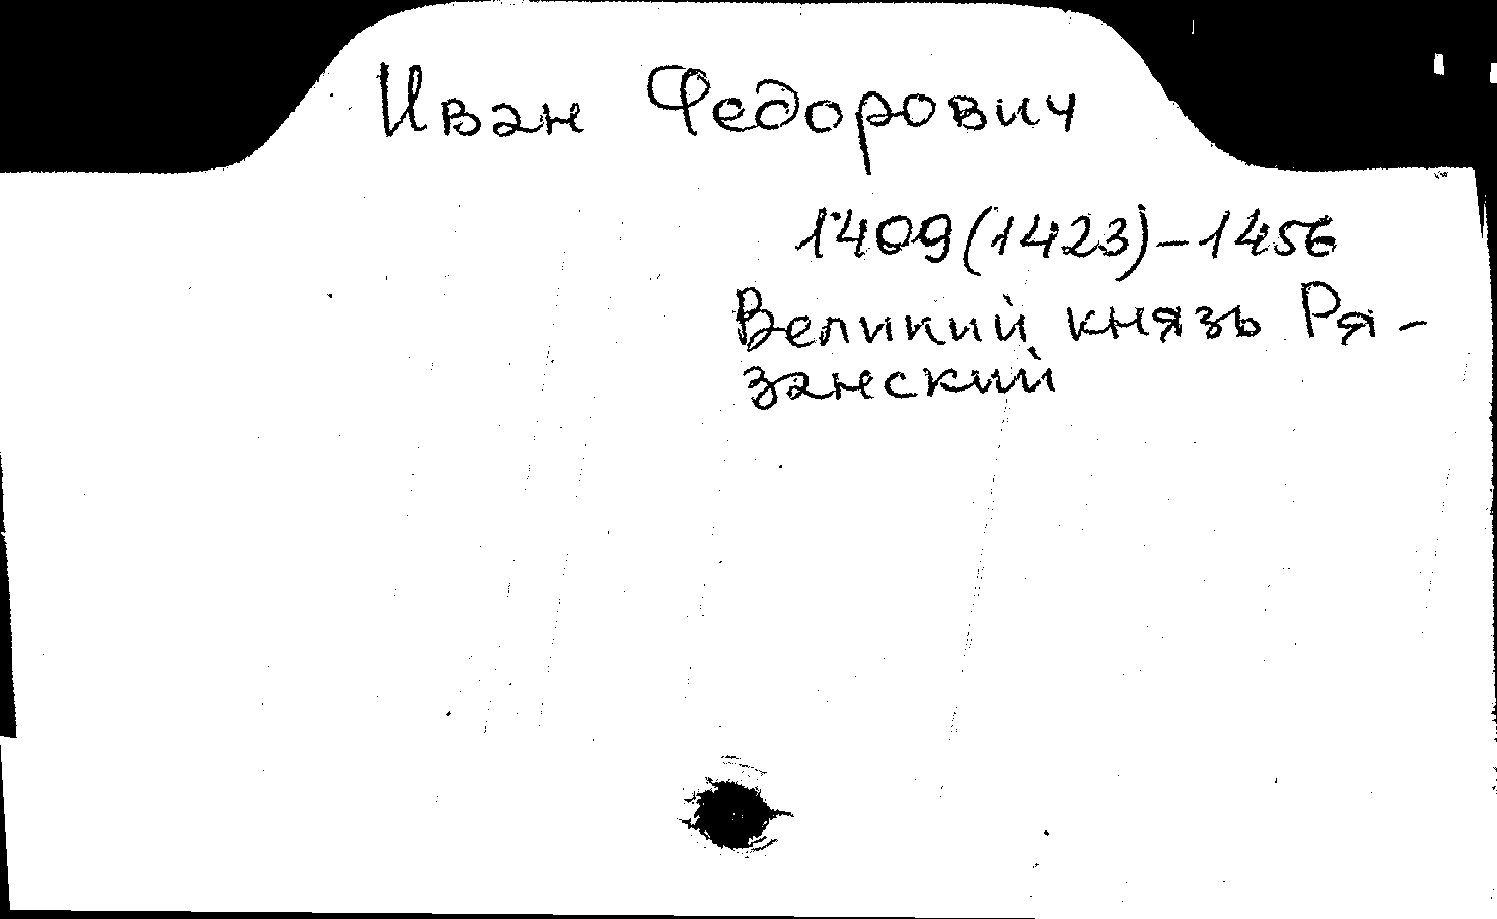 Иван Федорович
1409(1423)-1456
Великий князь Ря-
занский